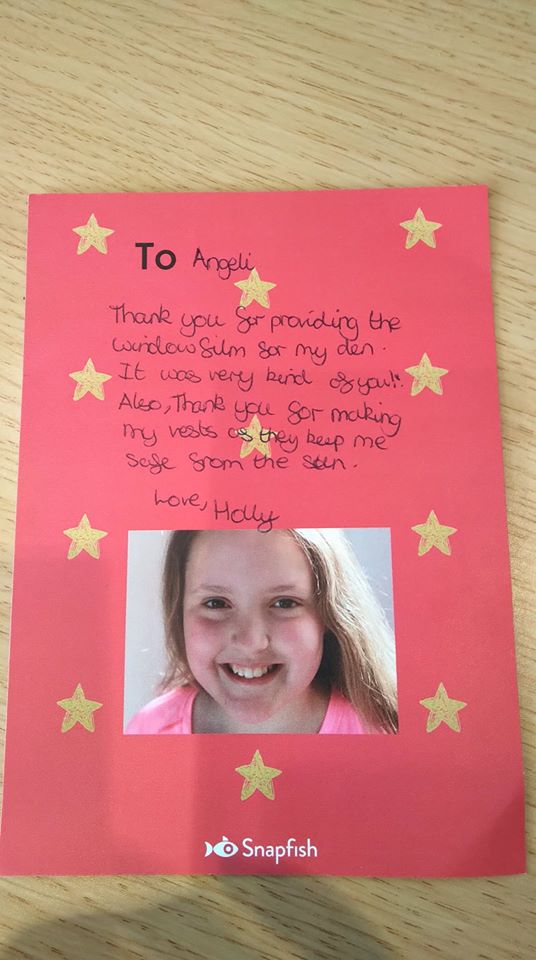 To Angeli
Thank you for providing the
window film for my den.
It was very kind of you!!
Also, Thank you for making
my vests as they keep me
safe from the sun.
Love, Holly
Snapfish